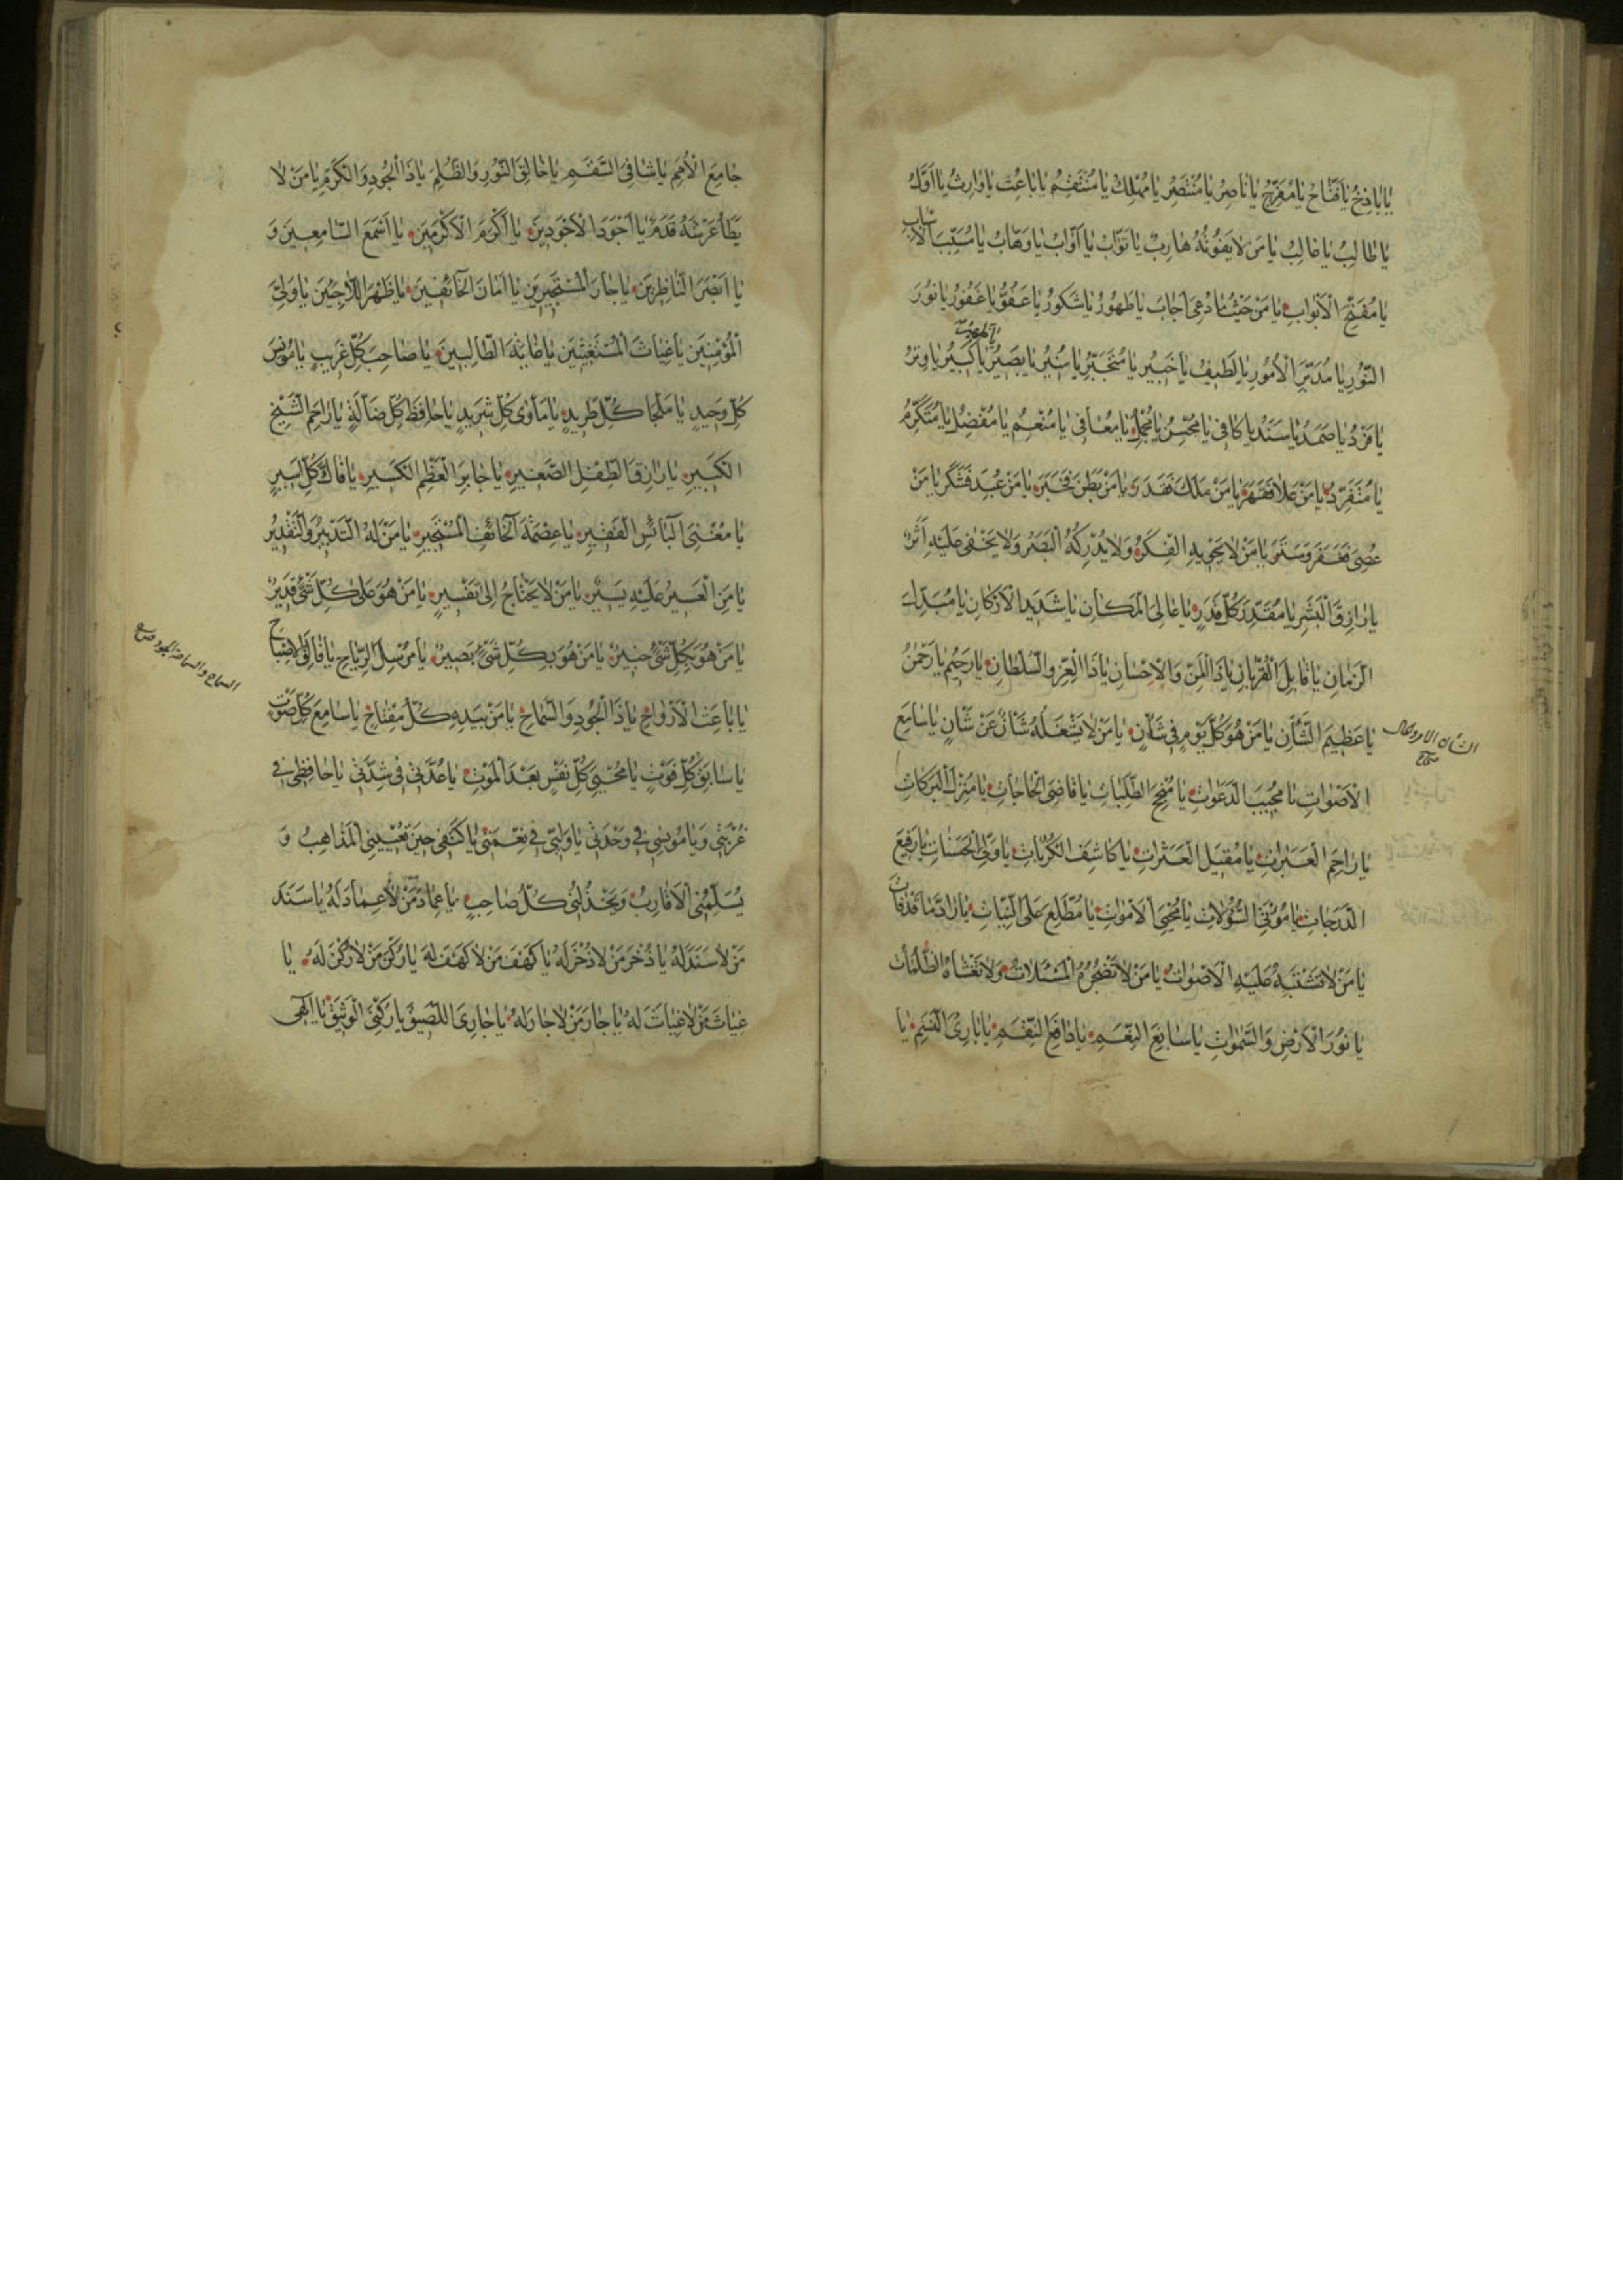 يَا بَاذِخُ يَا فَتَّاحُ يَا مُفَرِّجُ يَا نَاصِرُ يَا مُنْتَصِرُ يَا مُهْلِكُ يَا مُنْتَقِمُ يَا بَاعِثُ يَا وَارِثُ يَا اَوَّلُ
يَا طَالِبُ يَا غَالِبُ يَا مَنْ لَا يَفُوتُهُ هَارِبٌ يَا تَوَّابُ يَا اَوَّابُ يَا وَهَّابُ يَا مُسَبِّبَ الْاَسْبَابِ
يَا مُفَتِّحَ الْاَبْوَابِ يَا مَنْ حَيْثُ مَا دُعِيَ اَجَابَ يَا طَهُورُ يَا شَكُورُ يَا عَفُوُّ يَا غَفُورُ يَا نُورَ
النُّورِ يَا مُدَبِّرَ الْاُمُورِ يَا لَطِيفُ يَا خَبِيرُ يَا مُتَجَبِّرُ يَا مُنِيرُ يَا بَصِيرُ يَا كَبِيرُ يَا وِتْرُ
يَا فَرْدُ يَا صَمَدُ يَا سَنَدُ يَا كَافِي يَا مُحْسِنُ يَا مُجْمِلُ يَا مُعَافِي يَا مُنْعِمُ يَا مُفْضِلُ يَا مُتَكَرِّمُ
يَا مُتَفَرِّدُ يَا مَنْ عَلَا فَقَهَرَ يَا مَنْ مَلَكَ فَقَدَرَ وَيَا مَنْ بَطَنَ فَخَبَرَ يَا مَنْ عُبِدَ فَشَكَرَ يَا مَنْ
عُصِيَ فَغَفَرَ وَسَتَرَ يَا مَنْ لَا يَحْوِيهِ الْفِكَرُ وَلَا يُدْرِكُهُ الْبَصَرُ وَلَا يَخْفَى عَلَيْهِ اَثَرٌ
يَا رَازِقَ الْبَشَرِ يَا مُقَدِّرَ كُلِّ قَدَرٍ يَا عَالِيَ الْمَكَانِ يَا شَدِيدَ الْاَرْكَانِ يَا مُبَدِّلَ
الزَّمَانِ يَا قَابِلَ الْقُرْبَانِ يَا ذَا الْمَنِّ وَالْاِحْسَانِ يَا ذَا الْعِزِّ وَالسُّلْطَانِ يَا رَحِيمُ يَا رَحْمٰنُ
يَا عَظِيمَ الشَّأْنِ يَا مَنْ هُوَ كُلَّ يَوْمٍ فِي شَأْنٍ يَا مَنْ لَا يَشْغَلُهُ شَأْنٌ عَنْ شَأْنٍ يَا سَامِعَ
الشان الامر والحال
صحاح
الْاَصْوَاتِ يَا مُجِيبَ الدَّعَوَاتِ يَا مُنْجِحَ الطَّلِبَاتِ يَا قَاضِيَ الْحَاجَاتِ يَا مُنْزِلَ الْبَرَكَاتِ
يَا رَاحِمَ الْعَبَرَاتِ يَا مُقِيلَ الْعَثَرَاتِ يَا كَاشِفَ الْكُرُبَاتِ يَا وَلِيَّ الْحَسَنَاتِ يَا رَفِيعَ
الدَّرَجَاتِ يَا مُؤْتِيَ السُّؤُلَاتِ يَا مُحْيِيَ الْاَمْوَاتِ يَا مُطَّلِعُ عَلَى النِّيَّاتِ يَا رَادَّ مَا قَدْ فَاتَ
يَا مَنْ لَا تَشْتَبِهُ عَلَيْهِ الْاَصْوَاتُ يَا مَنْ لَا تُضْجِرُهُ الْمَسْئَلَاتُ وَلَا تَغْشَاهُ الظُّلُمَاتُ
يَا نُورَ الْاَرْضِ وَالسَّمٰوَاتِ يَا سَابِغَ النِّعَمِ يَا دَافِعَ النِّقَمِ يَا بَارِئَ النَّسَمِ يَا
جَامِعَ الْاُمَمِ يَا شَافِيَ السَّقَمِ يَا خَالِقَ النُّورِ وَالظُّلَمِ يَا ذَا الْجُودِ وَالْكَرَمِ يَا مَنْ لَا
يَطَأُ عَرْشَهُ قَدَمٌ يَا اَجْوَدَ الْاَجْوَدِينَ يَا اَكْرَمَ الْاَكْرَمِينَ يَا اَسْمَعَ السَّامِعِينَ وَ
يَا اَبْصَرَ النَّاظِرِينَ يَا جَارَ الْمُسْتَجِيرِينَ يَا اَمَانَ الْخَائِفِينَ يَا ظَهْرَ اللَّاجِينَ يَا وَلِيَّ
الْمُؤْمِنِينَ يَا غِيَاثَ الْمُسْتَغِيثِينَ يَا غَايَةَ الطَّالِبِينَ يَا صَاحِبَ كُلِّ غَرِيبٍ يَا مُونِسَ
كُلِّ وَحِيدٍ يَا مَلْجَأَ كُلِّ طَرِيدٍ يَا مَأْوَى كُلِّ شَرِيدٍ يَا حَافِظَ كُلِّ ضَالَّةٍ يَا رَاحِمَ الشَّيْخِ
الْكَبِيرِ يَا رَازِقَ الطِّفْلِ الصَّغِيرِ يَا جَابِرَ الْعَظْمِ الْكَسِيرِ يَا فَاكَّ كُلِّ اَسِيرٍ
يَا مُغْنِيَ الْبَائِسِ الْفَقِيرِ يَا عِصْمَةَ الْخَائِفِ الْمُسْتَجِيرِ يَا مَنْ لَهُ التَّدْبِيرُ وَالتَّقْدِيرُ
يَا مَنِ الْعَسِيرُ عَلَيْهِ يَسِيرٌ يَا مَنْ لَا يَحْتَاجُ اِلَى تَفْسِيرٍ يَا مَنْ هُوَ عَلَى كُلِّ شَيْءٍ قَدِيرٌ
يَا مَنْ هُوَ بِكُلِّ شَيْءٍ خَبِيرٌ يَا مَنْ هُوَ بِكُلِّ شَيْءٍ بَصِيرٌ يَا مُرْسِلَ الرِّيَاحِ يَا فَالِقَ الْاِصْبَاحِ
السماح والسماحة الجود صحاح
يَا بَاعِثَ الْاَرْوَاحِ يَا ذَا الْجُودِ وَالسَّمَاحِ يَا مَنْ بِيَدِهِ كُلُّ مِفْتَاحٍ يَا سَامِعَ كُلِّ صَوْتٍ
يَا سَابِقَ كُلِّ فَوْتٍ يَا مُحْيِيَ كُلِّ نَفْسٍ بَعْدَ الْمَوْتِ يَا عُدَّتِي فِي شِدَّتِي يَا حَافِظِي فِي
غُرْبَتِي وَيَا مُونِسِي فِي وَحْدَتِي يَا وَلِيِّي فِي نِعْمَتِي يَا كَنَفِي حِينَ تُعْيِينِي الْمَذَاهِبُ وَ
تُسَلِّمُنِي الْاَقَارِبُ وَيَخْذُلُنِي كُلُّ صَاحِبٍ يَا عِمَادَ مَنْ لَا عِمَادَ لَهُ يَا سَنَدَ
مَنْ لَا سَنَدَ لَهُ يَا ذُخْرَ مَنْ لَا ذُخْرَ لَهُ يَا كَهْفَ مَنْ لَا كَهْفَ لَهُ يَا رُكْنَ مَنْ لَا رُكْنَ لَهُ يَا
غِيَاثَ مَنْ لَا غِيَاثَ لَهُ يَا جَارَ مَنْ لَا جَارَ لَهُ يَا جَارِيَ اللَّصِيقَ يَا رُكْنِيَ الْوَثِيقَ يَا اِلٰهِي